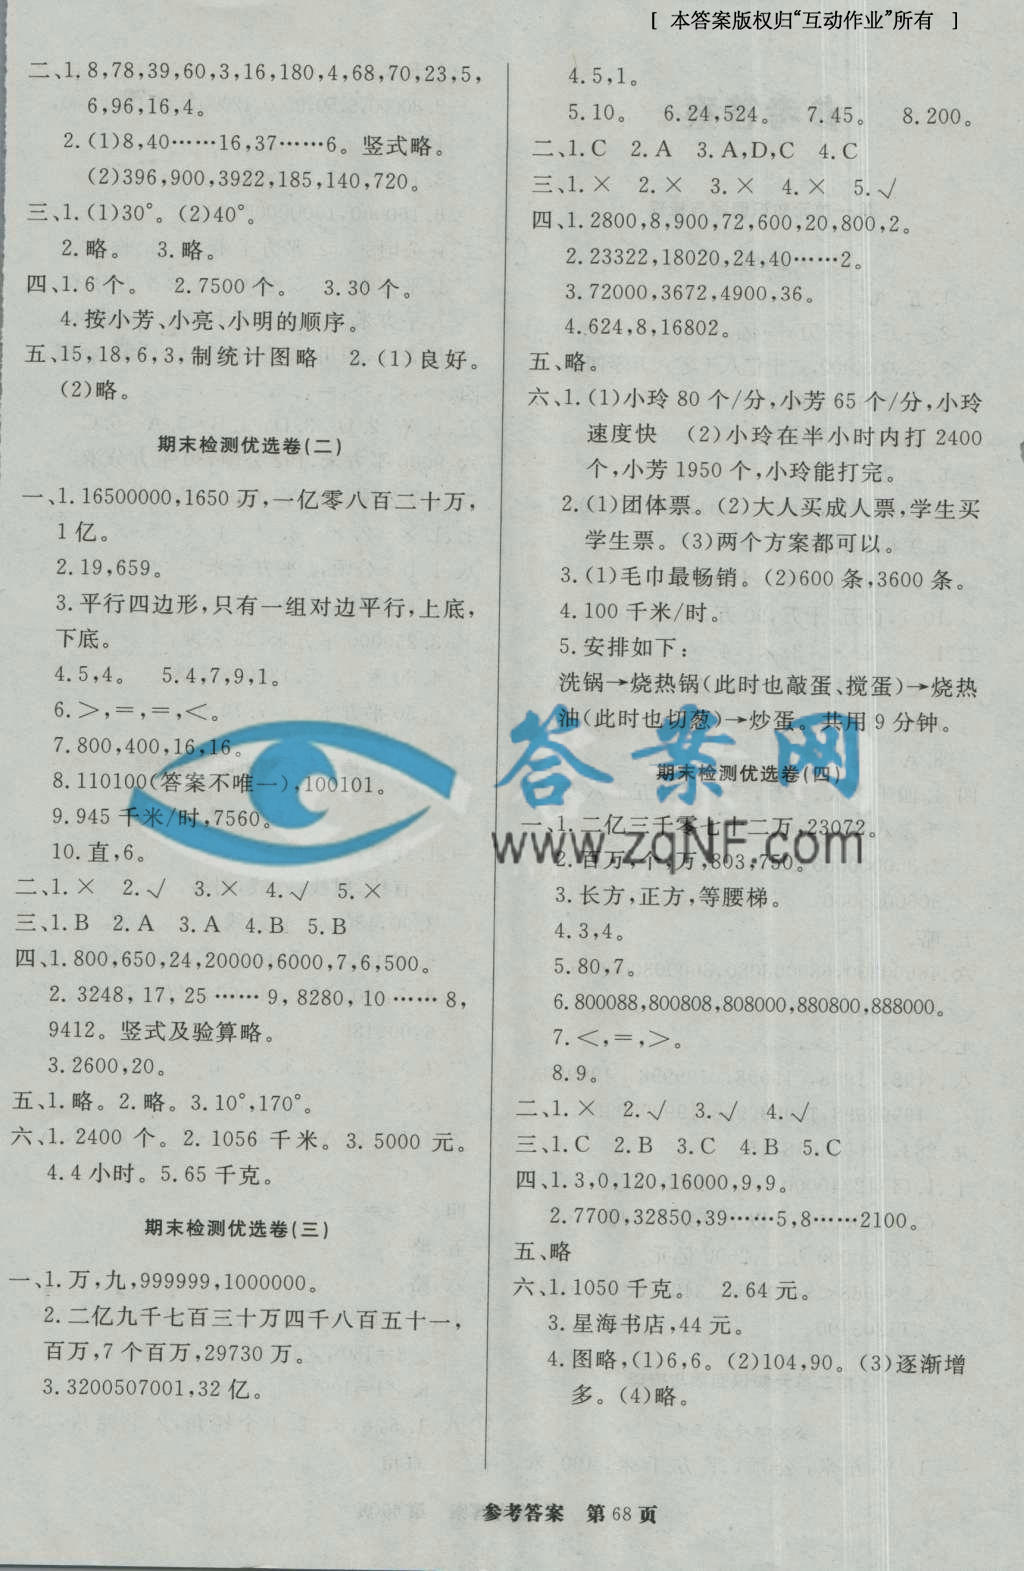 [ 本答案版权归“互动作业”所有 ]
二、1. 8,78,39,60,3,16,180,4,68,70,23,5,
6,96,16,4。
2. (1)8,40……16,37……6。竖式略。
(2)396,900,3922,185,140,720。
三、1. (1)30°。(2)40°。
2. 略。 3. 略。
四、1. 6 个。 2. 7500 个。 3. 30 个。
4. 按小芳、小亮、小明的顺序。
五、15,18,6,3,制统计图略 2. (1)良好。
(2)略。
期末检测优选卷(二)
一、1. 16500000,1650 万,一亿零八百二十万,
1 亿。
2. 19,659。
3. 平行四边形,只有一组对边平行,上底,
下底。
4. 5,4。 5. 4,7,9,1。
6. >,=,=,<。
7. 800,400,16,16。
8. 110100(答案不唯一),100101。
9. 945 千米/时,7560。
10. 直,6。
二、1. × 2. √ 3. × 4. √ 5. ×
三、1. B 2. A 3. A 4. B 5. B
四、1. 800,650,24,20000,6000,7,6,500。
2. 3248,17,25……9,8280,10……8,
9412。竖式及验算略。
3. 2600,20。
五、1. 略。2. 略。3. 10°,170°。
六、1. 2400 个。2. 1056 千米。3. 5000 元。
4. 4 小时。5. 65 千克。
期末检测优选卷(三)
一、1. 万,九,999999,1000000。
2. 二亿九千七百三十万四千八百五十一,
百万,7 个百万,29730 万。
3. 3200507001,32 亿。
4. 5,1。
5. 10。 6. 24,524。 7. 45。 8. 200。
二、1. C 2. A 3. A,D,C 4. C
三、1. × 2. × 3. × 4. × 5. √
四、1. 2800,8,900,72,600,20,800,2。
2. 23322,18020,24,40……2。
3. 72000,3672,4900,36。
4. 624,8,16802。
五、略。
六、1. (1)小玲 80 个/分,小芳 65 个/分,小玲
速度快 (2)小玲在半小时内打 2400
个,小芳 1950 个,小玲能打完。
2. (1)团体票。(2)大人买成人票,学生买
学生票。(3)两个方案都可以。
3. (1)毛巾最畅销。(2)600 条,3600 条。
4. 100 千米/时。
5. 安排如下:
洗锅→烧热锅(此时也敲蛋、搅蛋)→烧热
油(此时也切葱)→炒蛋。共用 9 分钟。
答案网
www.zqNF.com
期末检测优选卷(四)
一、1. 二亿三千零七十二万,23072。
2. 百万,个,万,803,750。
3. 长方,正方,等腰梯。
4. 3,4。
5. 80,7。
6. 800088,800808,808000,880800,888000。
7. <,=,>。
8. 9。
二、1. × 2. √ 3. √ 4. √
三、1. C 2. B 3. C 4. B 5. C
四、1. 3,0,120,16000,9,9。
2. 7700,32850,39……5,8……2100。
五、略
六、1. 1050 千克。 2. 64 元。
3. 星海书店,44 元。
4. 图略,(1)6,6。(2)104,90。(3)逐渐增
多。(4)略。
参考答案 第 68 页